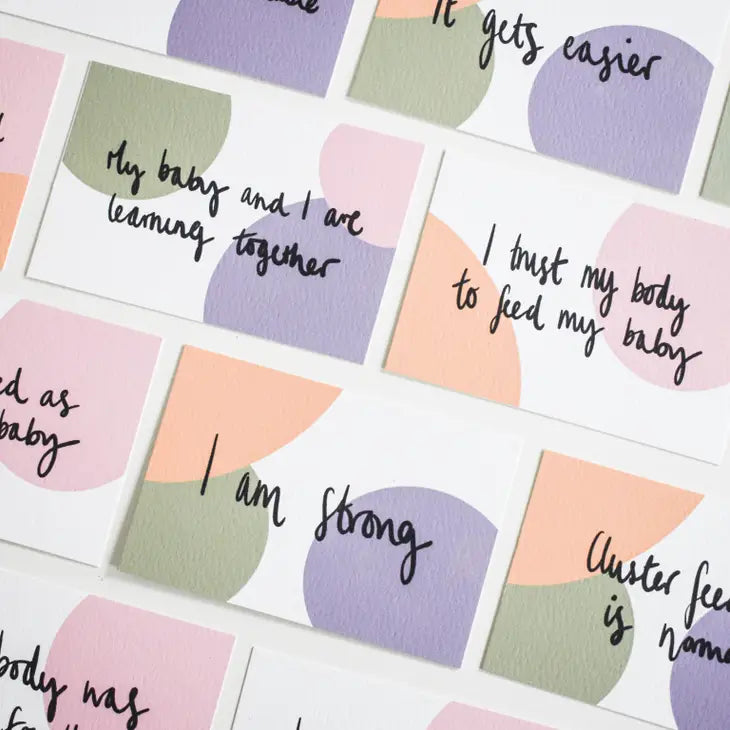 It gets easier
My baby and I are
learning together
I trust my body
to feed my baby
as
baby
I am strong
Cluster
is
body was